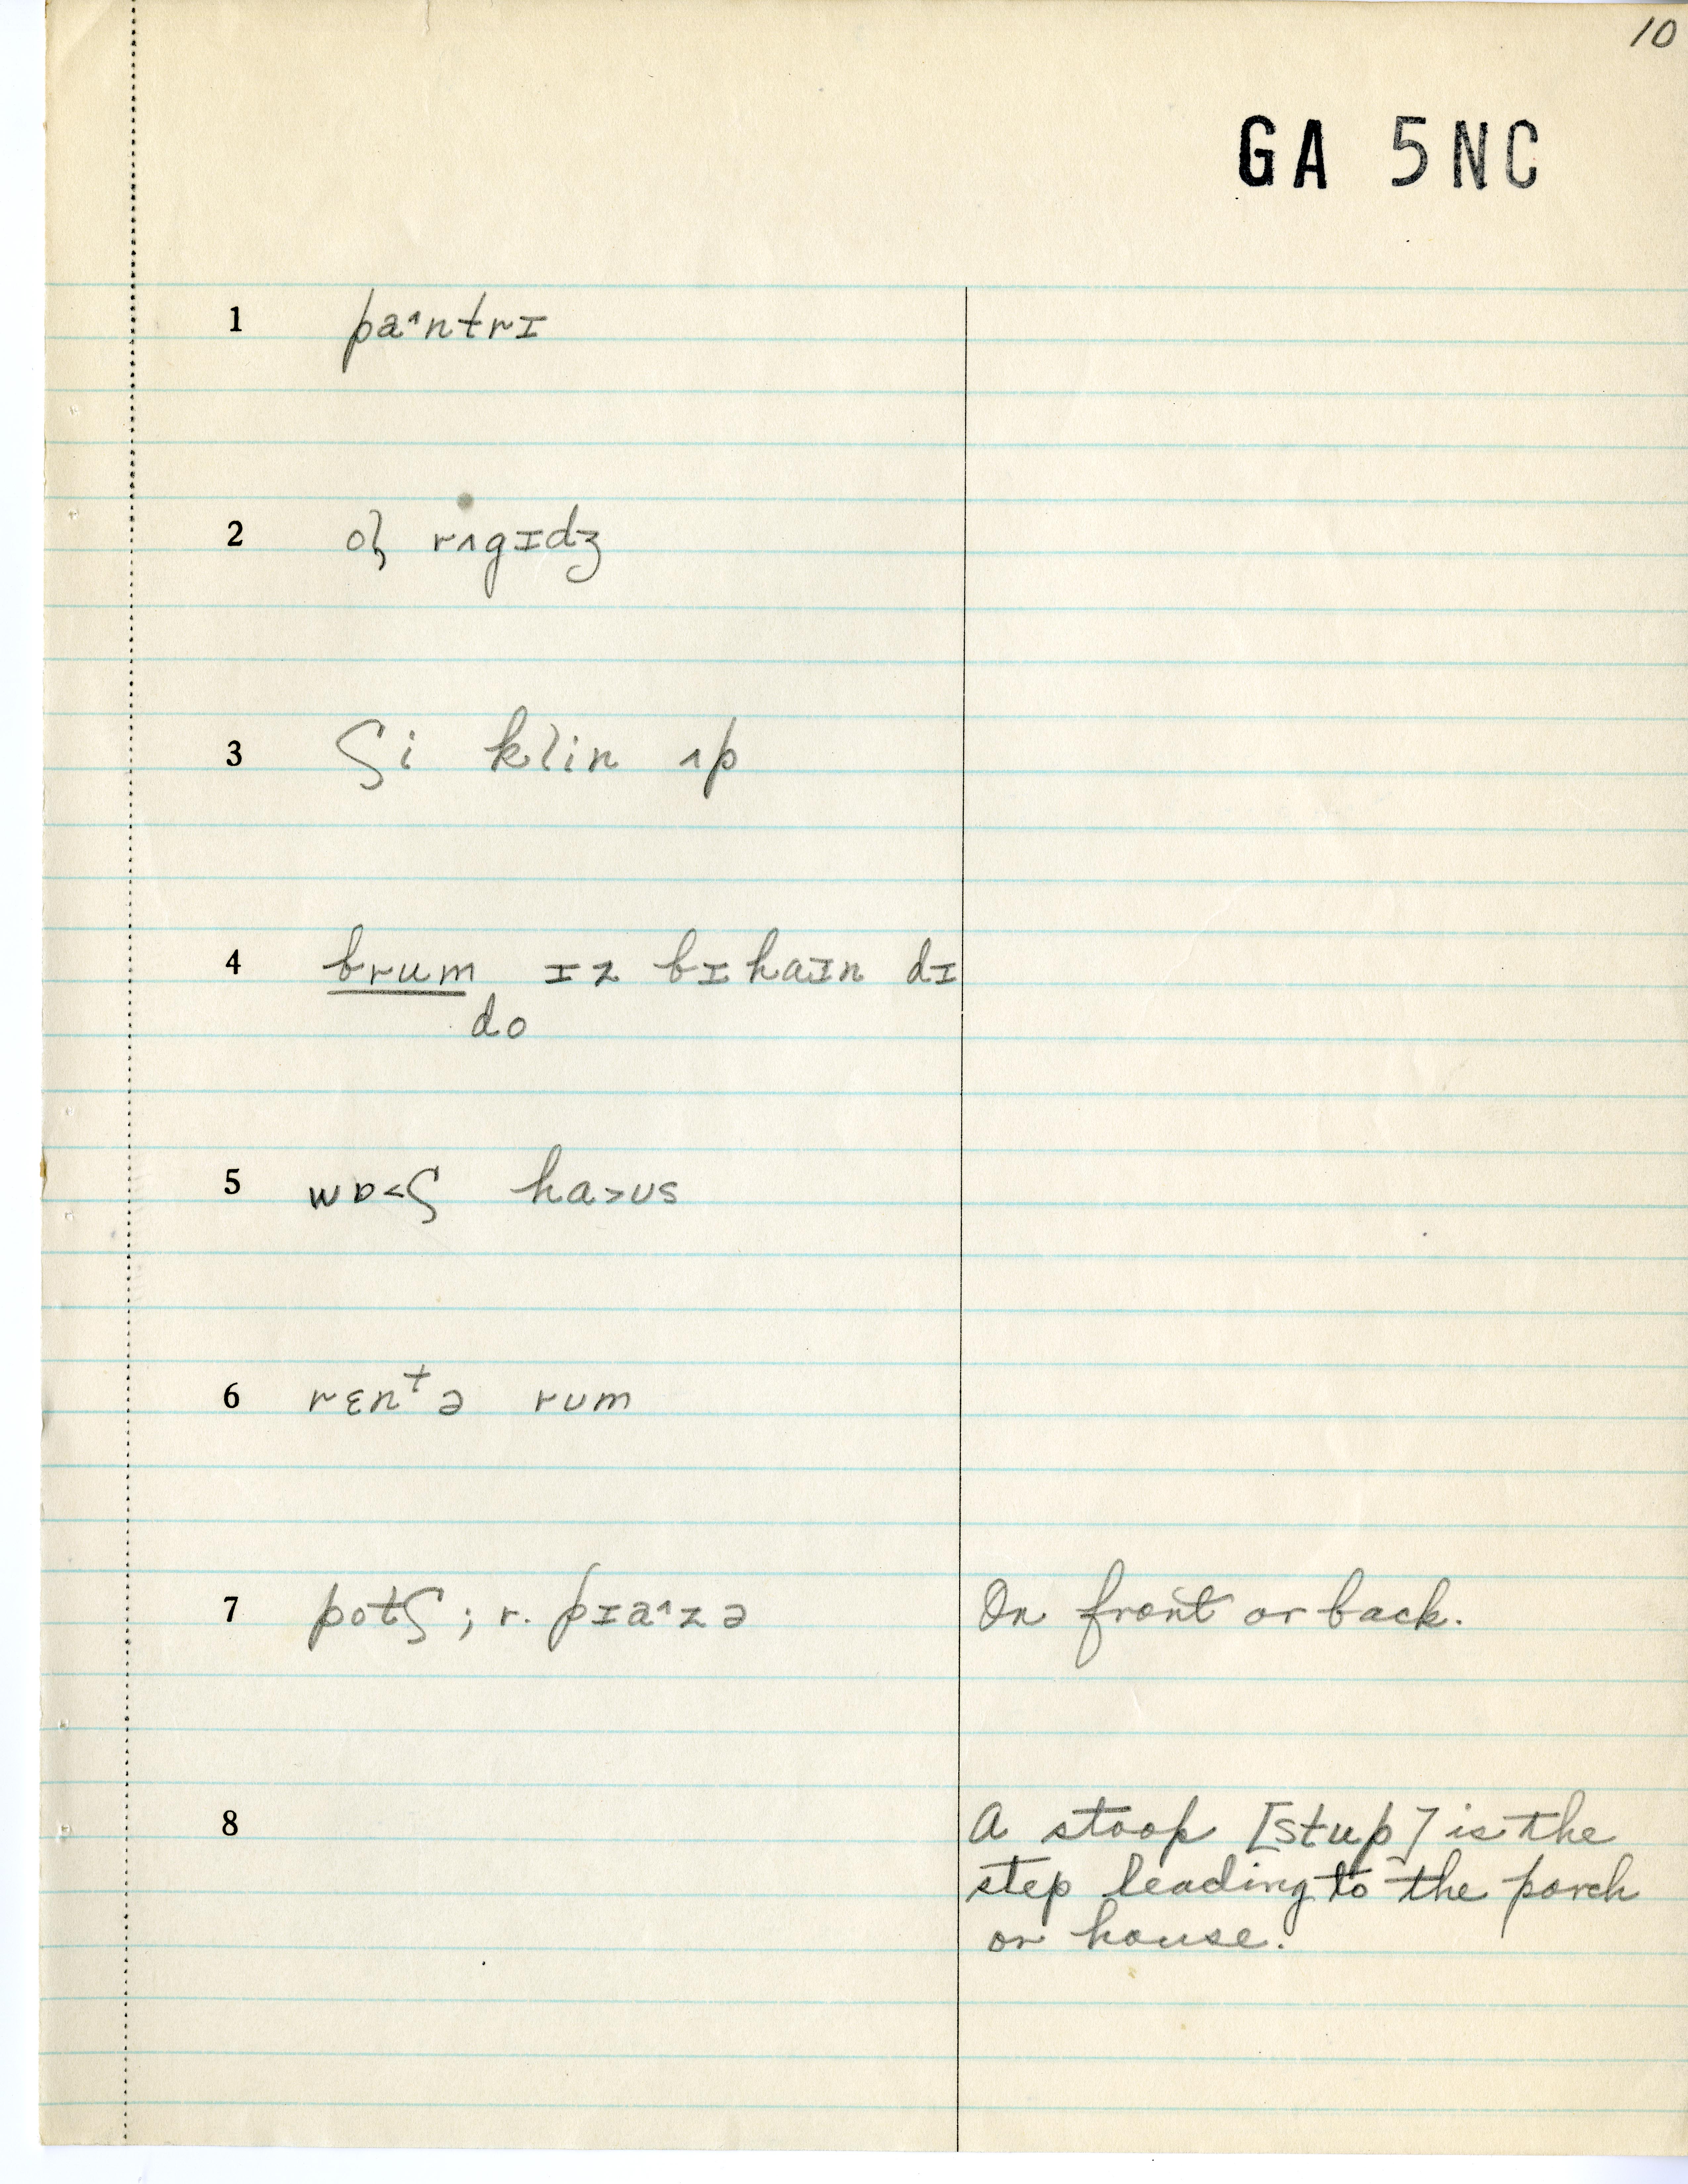 10
GA 5NC
1 pa^ntrɪ
2 ol̥ rʌgɪdʒ
3 ʃi klin ʌp
4 brum ɪz bɪhaɪn dɪ
do
5 wɒ<ʃ ha>ʊs
6 rɛnᵗə rum
7 potʃ; r. pɪa^zə On front or back.
8 A stoop [stup] is the
step leading to the porch
or house.